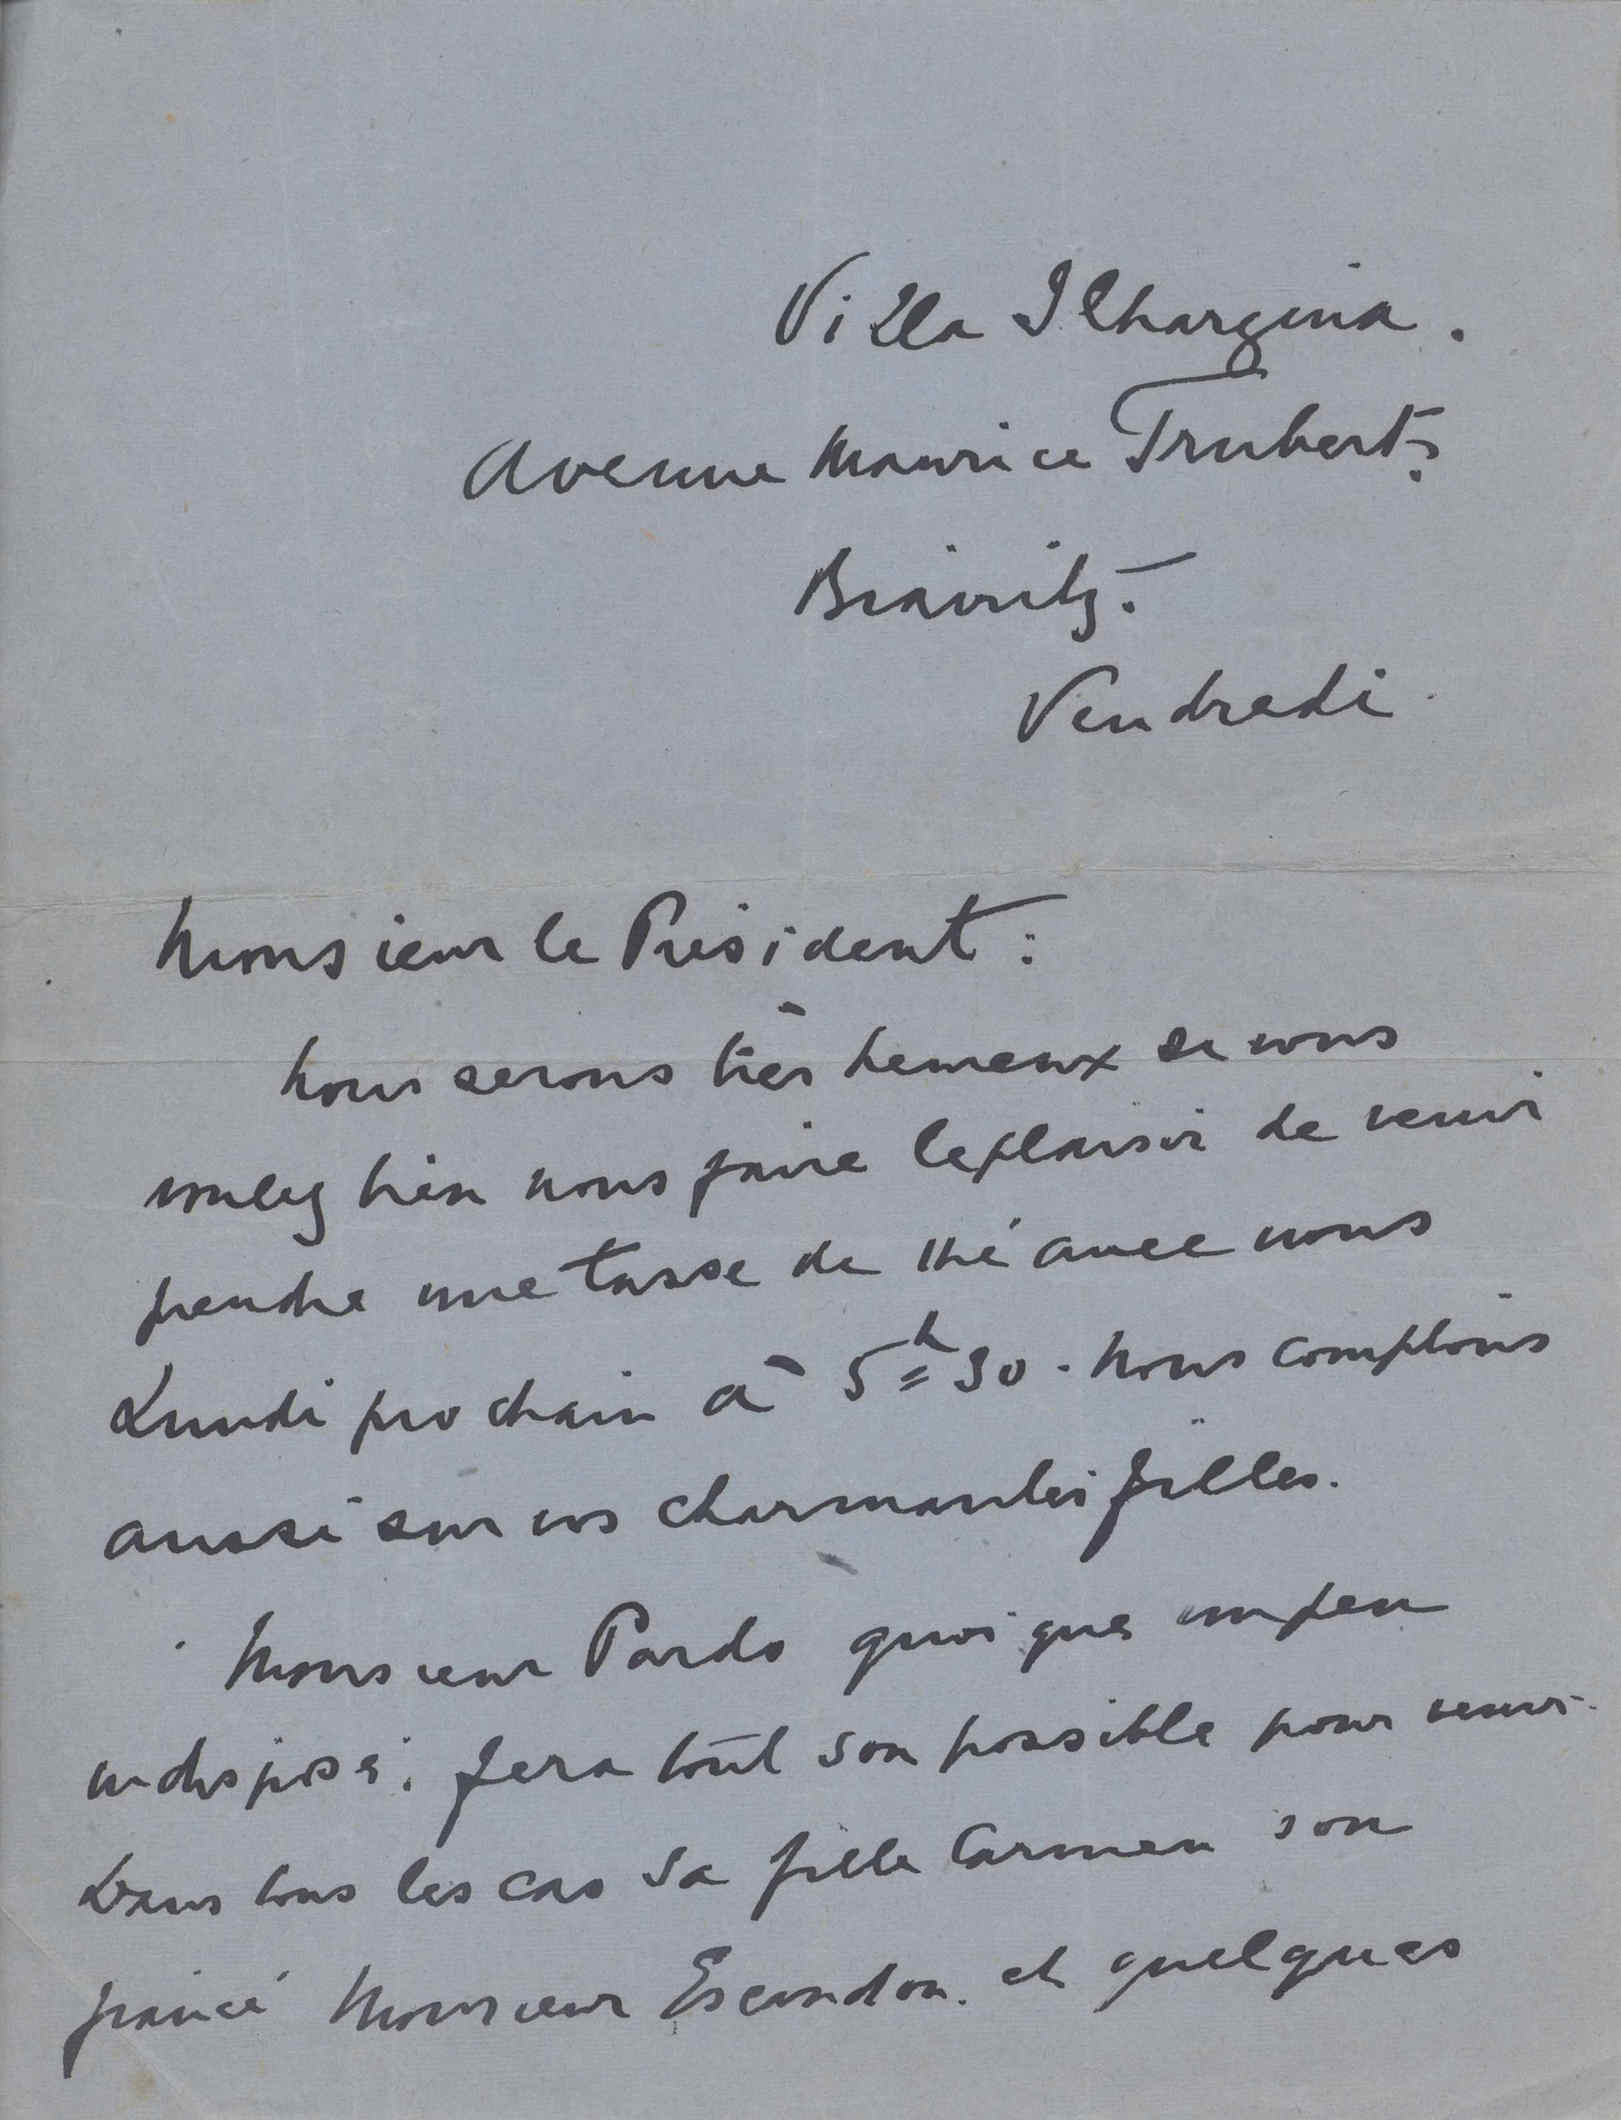 Villa Ilhargina.
Avenue Maurice Trubert.
Biarritz.
Vendredi.
Monsieur le Président:
Nous serons très heureux si vous
voulez bien nous faire le plaisir de venir
prendre une tasse de thé avec nous
Lundi prochain à 5h 30. Nous comptons
aussi sur vos charmantes filles.
Monsieur Pardo quoique un peu
indisposé, fera tout son possible pour venir.
Dans tous les cas sa fille Carmen son
fiancé Monsieur Escandon. et quelques